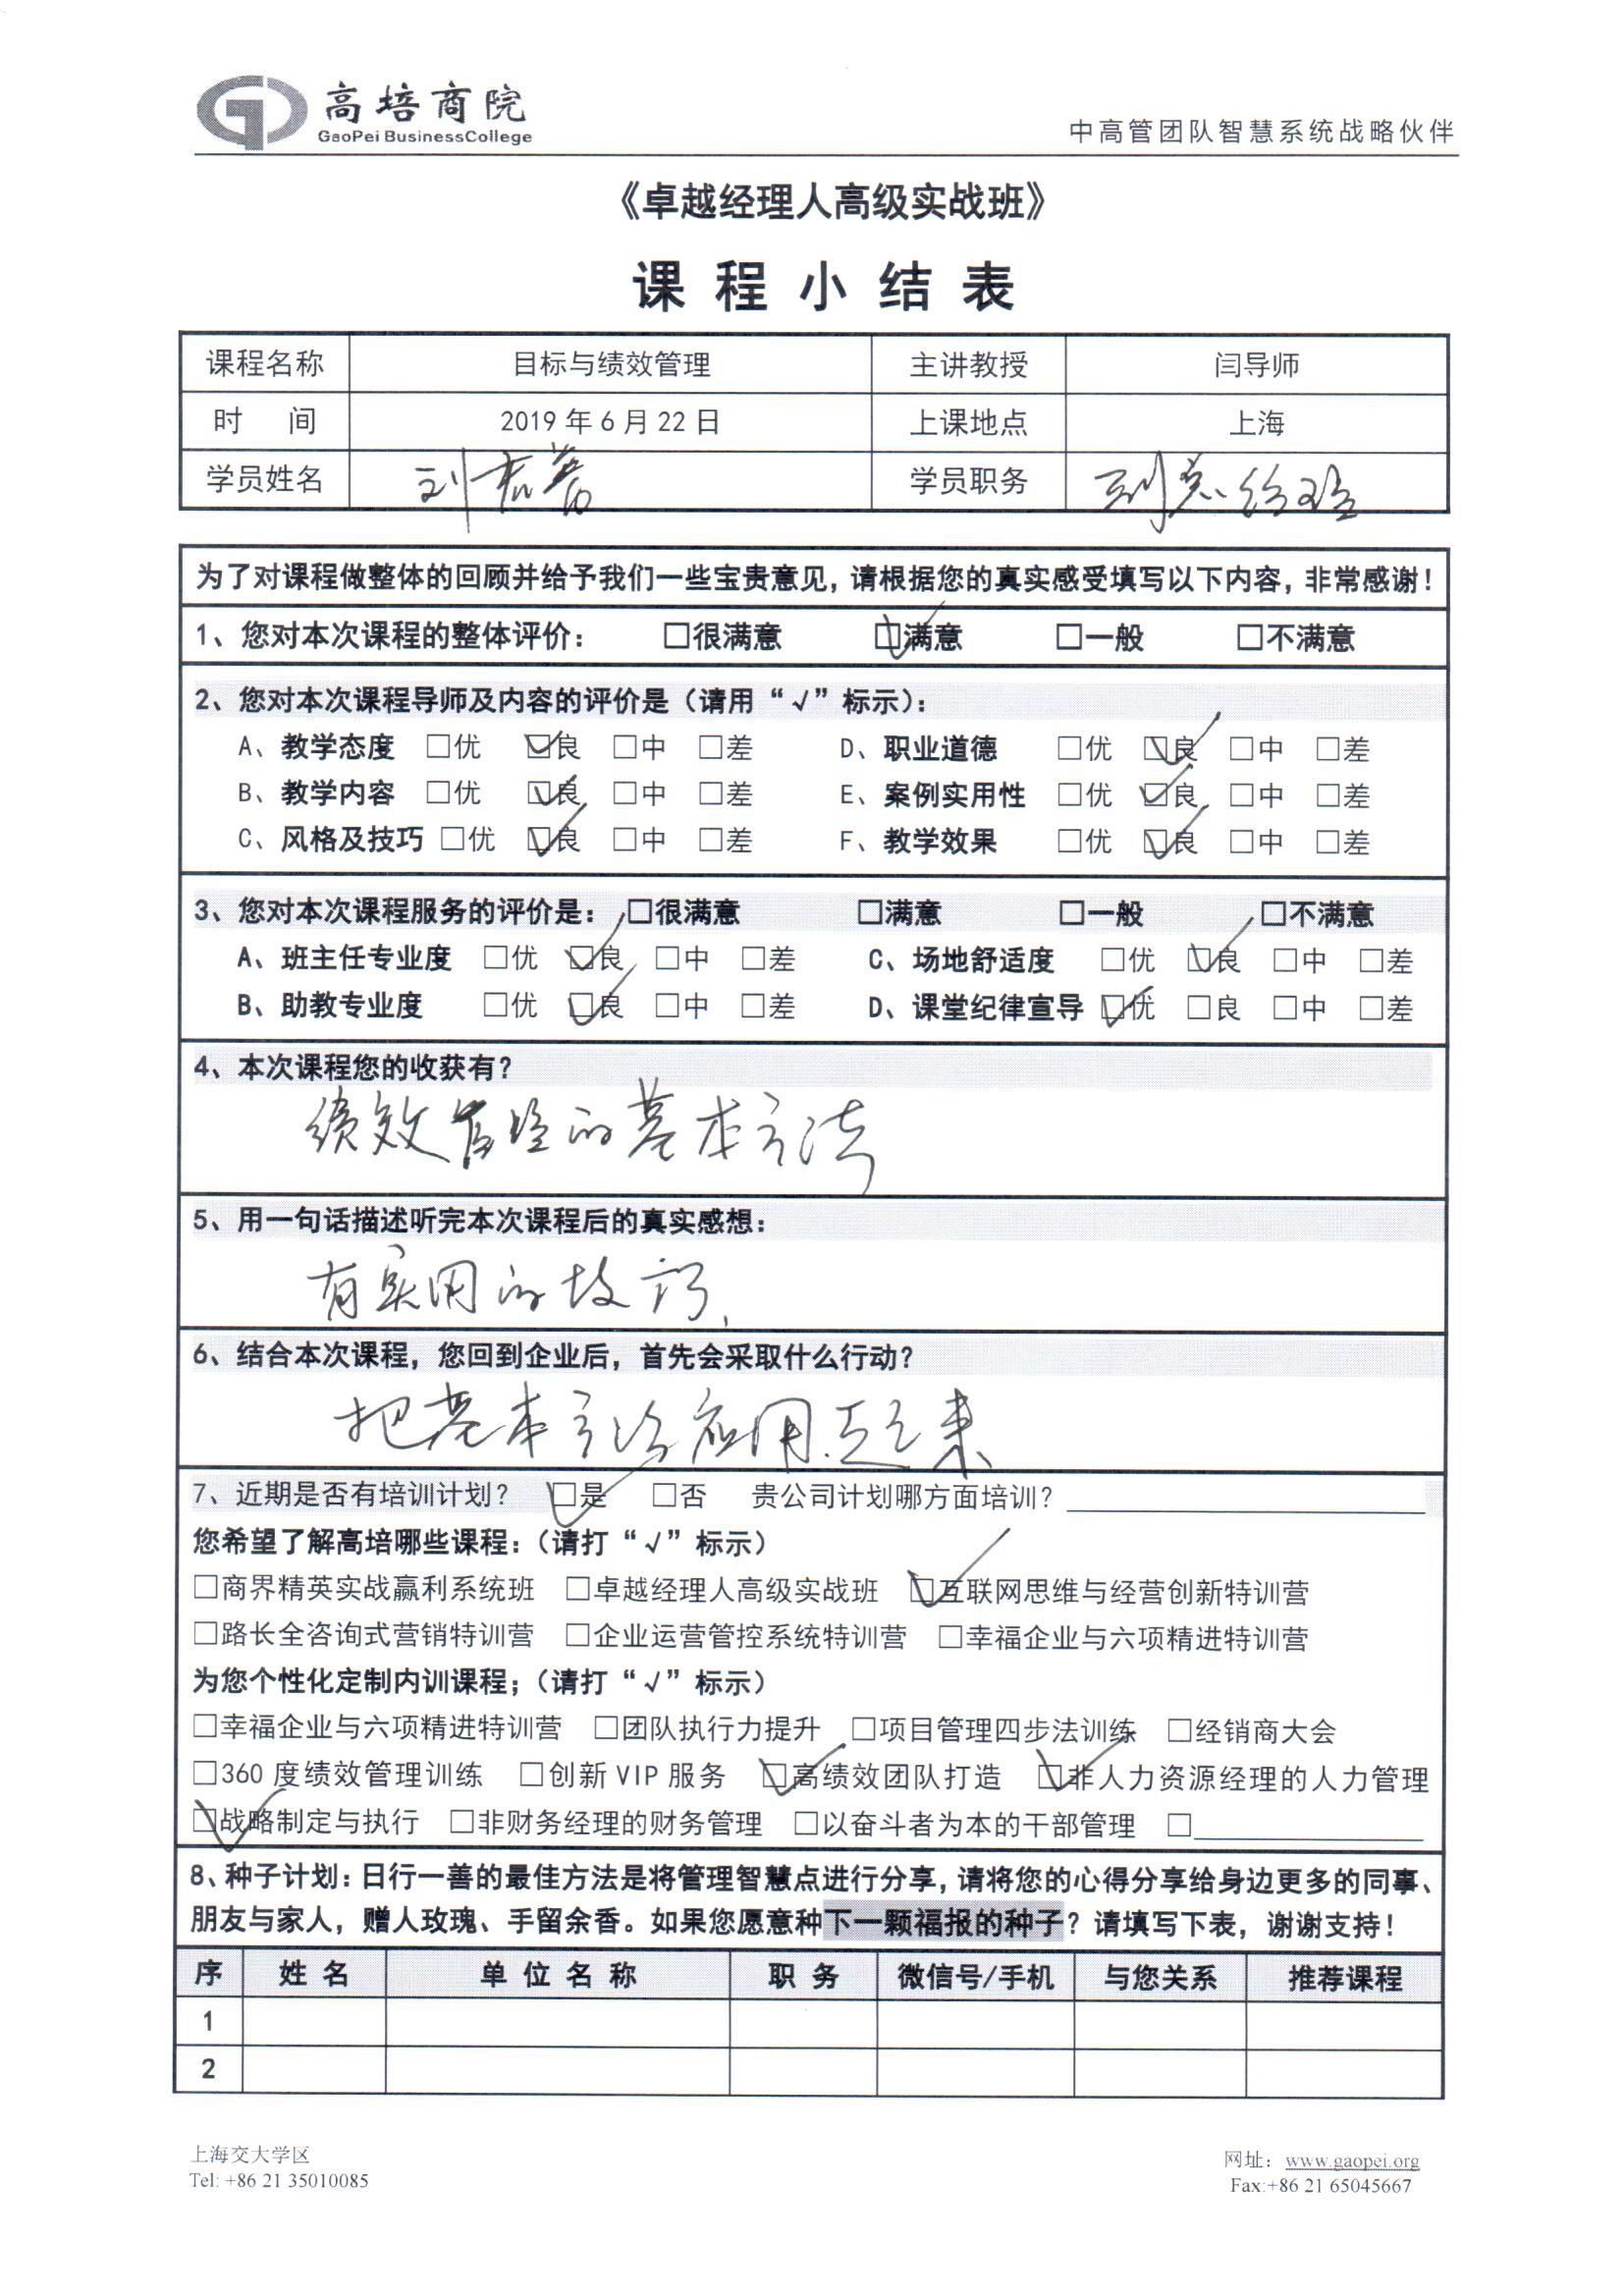 高培商院
GaoPei BusinessCollege
中高管团队智慧系统战略伙伴
《卓越经理人高级实战班》
课程小结表
课程名称 目标与绩效管理 主讲教授 闫导师
时 间 2019年6月22日 上课地点 上海
学员姓名 刘 学员职务 副总经理
为了对课程做整体的回顾并给予我们一些宝贵意见，请根据您的真实感受填写以下内容，非常感谢！
1、您对本次课程的整体评价： □很满意 ☑满意 □一般 □不满意
2、您对本次课程导师及内容的评价是（请用“√”标示）：
A、教学态度 □优 ☑良 □中 □差 D、职业道德 □优 ☑良 □中 □差
B、教学内容 □优 ☑良 □中 □差 E、案例实用性 □优 ☑良 □中 □差
C、风格及技巧 □优 ☑良 □中 □差 F、教学效果 □优 ☑良 □中 □差
3、您对本次课程服务的评价是： □很满意 □满意 □一般 □不满意
A、班主任专业度 □优 ☑良 □中 □差 C、场地舒适度 □优 ☑良 □中 □差
B、助教专业度 □优 ☑良 □中 □差 D、课堂纪律宣导 ☑优 □良 □中 □差
4、本次课程您的收获有？
绩效管理的基本方法
5、用一句话描述听完本次课程后的真实感想：
有实用的技巧.
6、结合本次课程，您回到企业后，首先会采取什么行动？
把基本方法应用起来
7、近期是否有培训计划？ ☑是 □否 贵公司计划哪方面培训？
您希望了解高培哪些课程：（请打“√”标示）
□商界精英实战赢利系统班 □卓越经理人高级实战班 ☑互联网思维与经营创新特训营
□路长全咨询式营销特训营 □企业运营管控系统特训营 □幸福企业与六项精进特训营
为您个性化定制内训课程；（请打“√”标示）
□幸福企业与六项精进特训营 □团队执行力提升 □项目管理四步法训练 □经销商大会
□360度绩效管理训练 □创新VIP服务 ☑高绩效团队打造 ☑非人力资源经理的人力管理
☑战略制定与执行 □非财务经理的财务管理 □以奋斗者为本的干部管理 □
8、种子计划：日行一善的最佳方法是将管理智慧点进行分享，请将您的心得分享给身边更多的同事、
朋友与家人，赠人玫瑰、手留余香。如果您愿意种下一颗福报的种子？请填写下表，谢谢支持！
序 姓名 单位名称 职务 微信号/手机 与您关系 推荐课程
1
2
上海交大学区
Tel: +86 21 35010085
网址：www.gaopei.org
Fax:+86 21 65045667